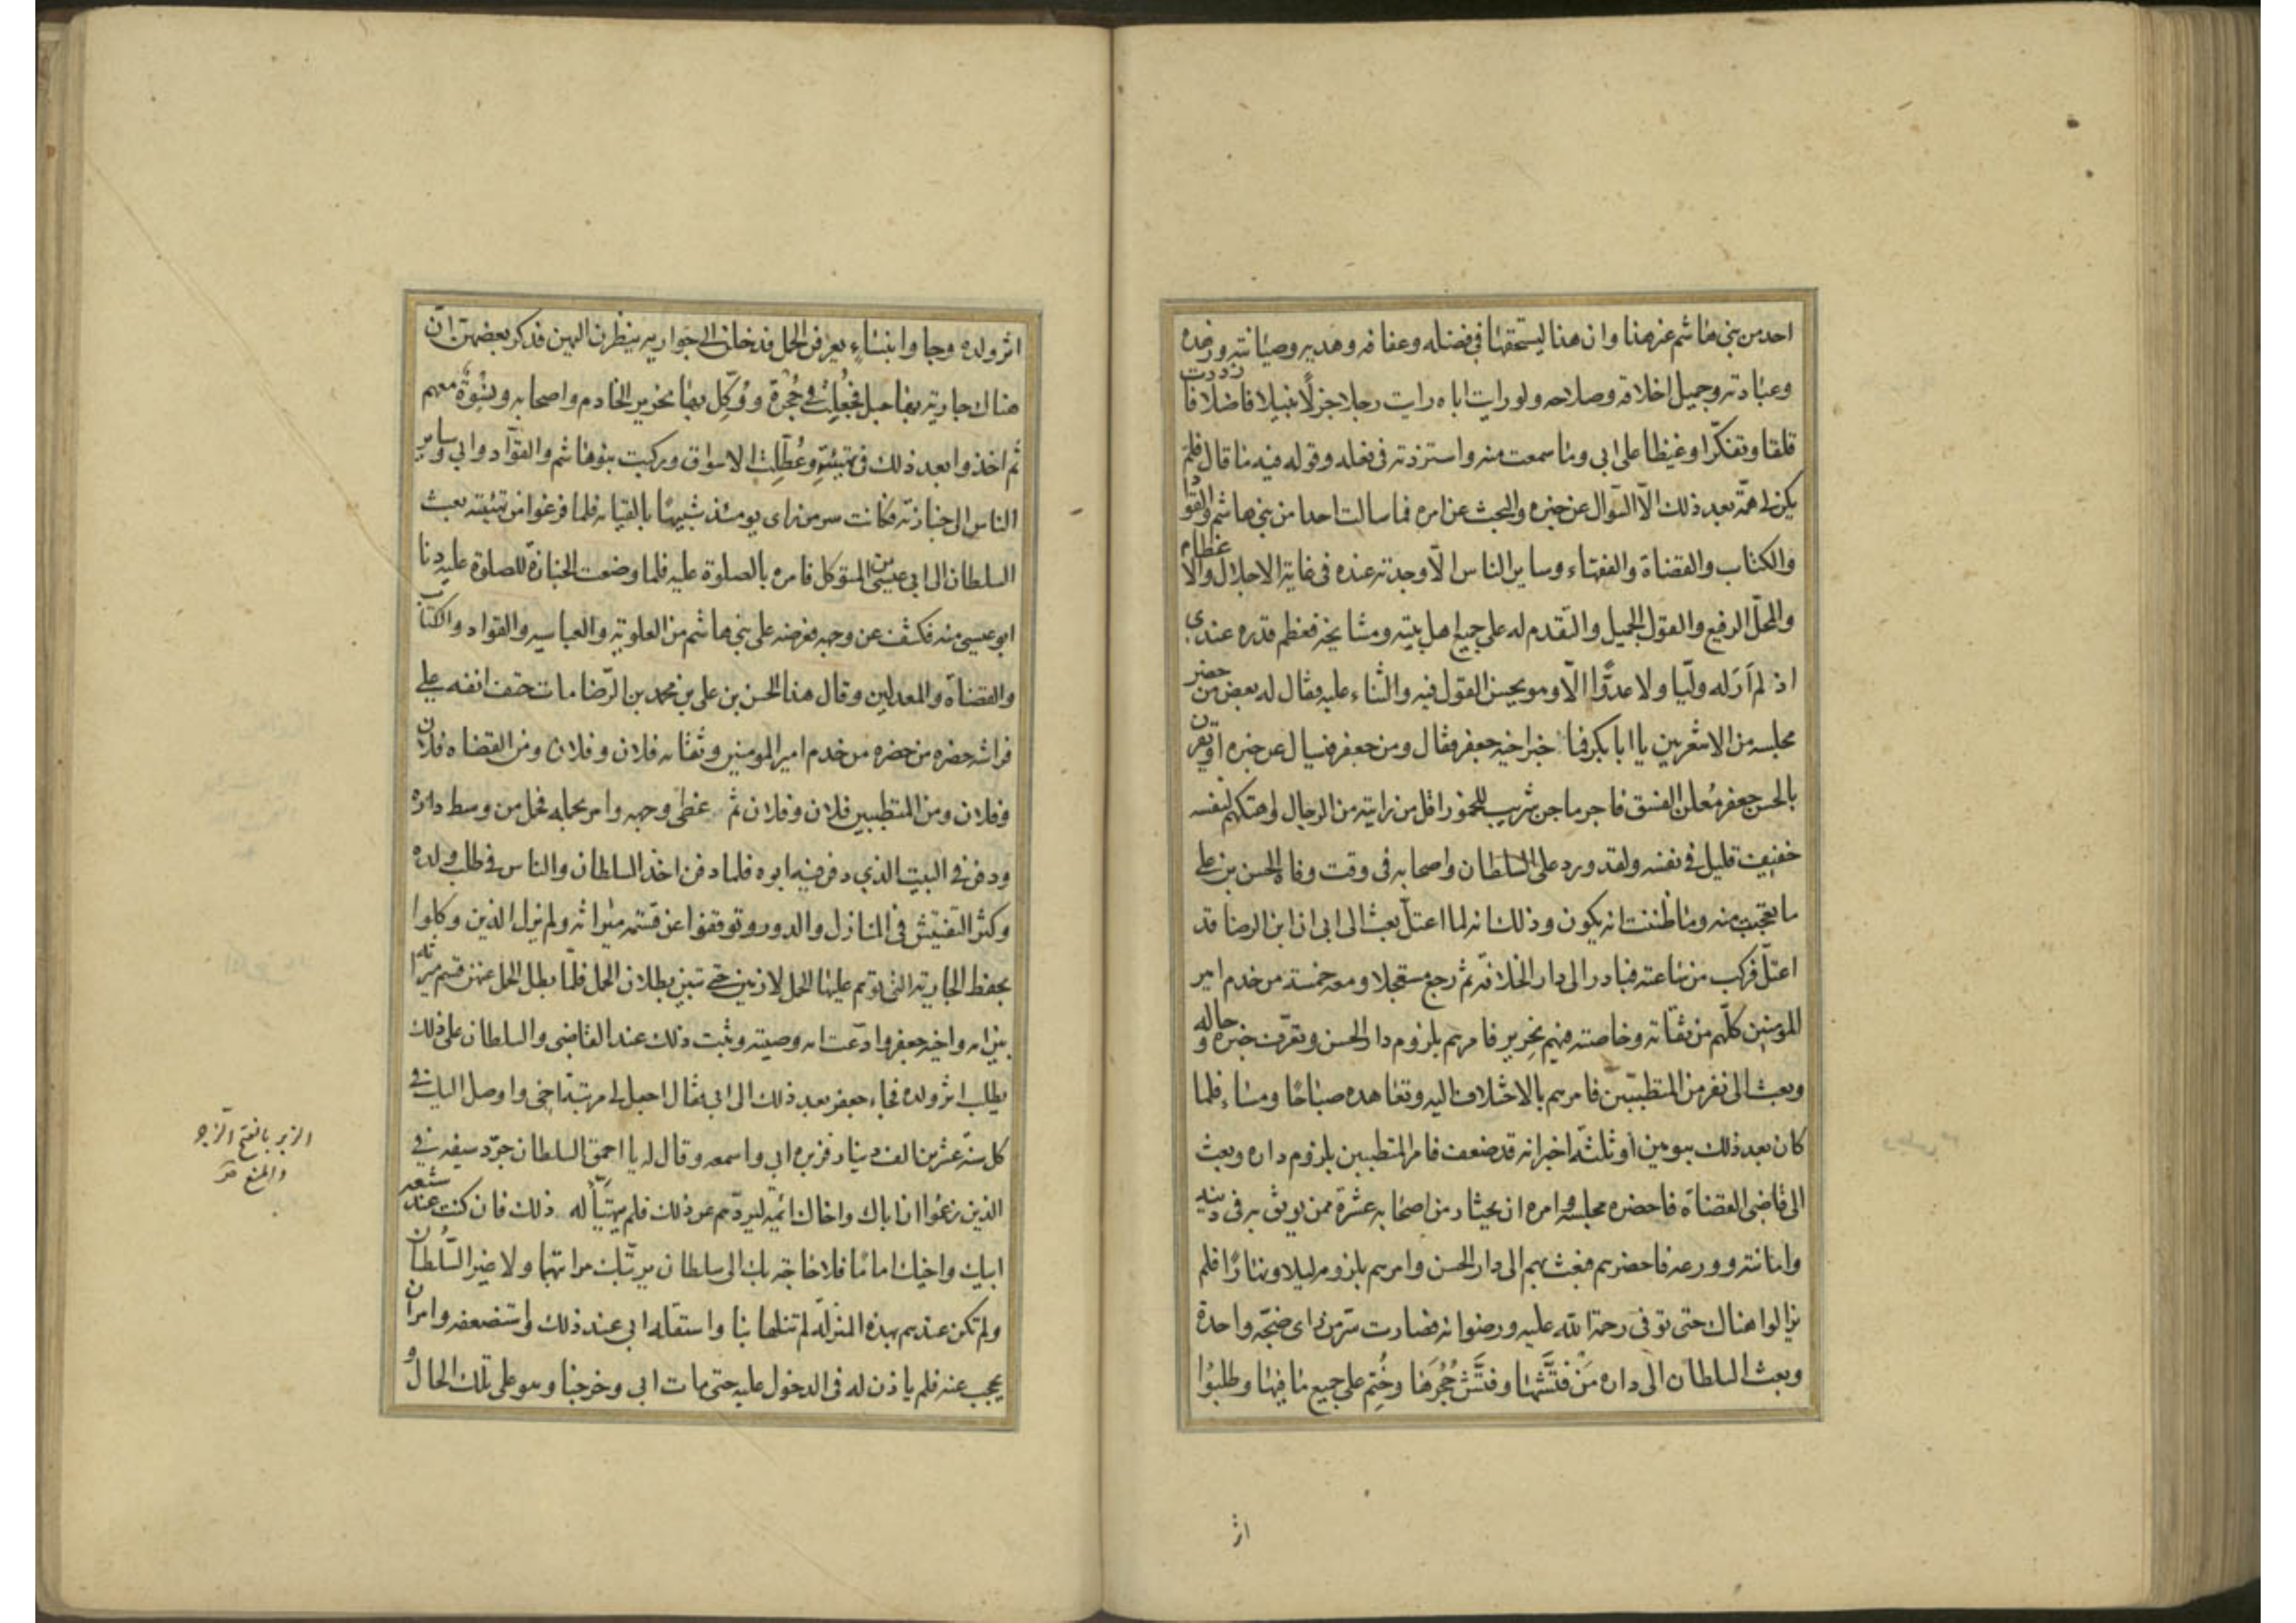 احد من بني هاشم غير هذا وان هذا ليستحقها في فضله وعفافه وهديه وصيانته وزهده
وعبادته وجميل اخلاقه وصلاحه ولو رايت اباه رايت رجلا جزلًا نبيلا فاضلا فازددت
قلقا وتفكّرا وغيظا على ابي وما سمعت منه واستزدته في فعله وقوله فيه ما قال فلم
يكن لي همّة بعد ذلك الّا السّوال عن خبره والبحث عن امره فما سالت احدا من بني هاشم والقوّاد
والكتاب والقضاة والفقهاء وساير الناس الّا وجدته عنده في غاية الاجلال والاعظام
والمحلّ الرفيع والقول الجميل والتقدم له على جميع اهل بيته ومشايخه فعظم قدره عندي
اذ لم اَرَ له وليّا ولا عدوًّا الّا وهو يحسن القول فيه والثناء عليه فقال له بعض من حضر
مجلسه من الاشعريين يا ابا بكر فما خبر اخيه جعفر فقال ومن جعفر فيسال عن خبره او يقرن
بالحسن جعفر مُعلن الفسق فاجر ماجن شريب للخمور اقل من رايته من الرجال واهتكهم لنفسه
خفيف قليل في نفسه ولقد ورد على السلطان واصحابه في وقت وفاة الحسن بن علي
ما تعجبت منه وما ظننت انه يكون وذلك انه لما اعتلّ بعث الى ابي ان ابن الرضا قد
اعتلّ فركب من ساعته فبادر الى دار الخلافة ثم رجع مستعجلا ومعه خمسة من خدم امير
المومنين كلّهم من ثقاته وخاصته فيهم نحرير فامرهم بلزوم دار الحسن وتعرّف خبره وحاله
وبعث الى نفر من المتطبّبين فامرهم بالاختلاف اليه وتعاهده صباحًا ومساء فلما
كان بعد ذلك بيومين او ثلثة اخبر انه قد ضعف فامر المتطببين بلزوم داره وبعث
الى قاضى القضاة فاحضره مجلسه وامره ان يختار من اصحابه عشرة ممن يوثق به في دينه
وامانته وورعه فاحضرهم فبعث بهم الى دار الحسن وامرهم بلزومه ليلا ونهارًا فلم
يزالوا هناك حتى توفى رحمة الله عليه ورضوانه فصارت سرّمن راى ضجّه واحدة
وبعث السلطان الى داره مَنْ فتَّشها وفتَّش حُجُرَها وخُتِم على جميع ما فيها وطلبُوا
اثر
اثر ولده وجاوا بنساءٍ يعرفن الحمل فدخلن الى جواريه ينظرن اليهن فذكر بعضهن انّ
هناك جارية بها حبل فجُعِلت في حُجرةٍ ووُكّل بها نحرير الخادم واصحابه ونِسْوة معهم
ثم اخذوا بعد ذلك في تهيئته وعُطّلت الاسواق وركبت بنو هاشم والقوّاد وابي وساير
الناس الى جنازته فكانت سر من راى يومئذ شبيهًا بالقيامه فلما فرغوا من تهيئته بعث
السلطان الى ابي عيسى بن المتوكل فامره بالصلوة عليه فلما وضعت الجنازة للصلوة عليه دنا
ابو عيسى منه فكشف عن وجهه فعرضه على بني هاشم من العلوية والعباسيه والقواد والكتّاب
والقضاة والمعدلين وقال هذا الحسن بن علي بن محمد بن الرّضا مات حتف انفه على
فراشه حضره من حضره من خدم امير المومنين وثقاته فلان وفلان ومن القضاه فلان
وفلان ومن المتطببين فلان وفلان ثم غطى وجهه وامر بحمله فحمل من وسط داره
ودفن في البيت الذي دفن فيه ابوه فلما دفن اخذ السلطان والناس في طلب ولده
وكثر التفتيش في المنازل والدور وتوقفوا عن قسمة ميراثه ولم يزل الذين وكلوا
بحفظ الجارية التي توهم عليها الحمل لازمين حتى تبين بطلان الحمل فلمّا بطل الحمل عنهن قسم ميراثه
بين امه واخيه جعفر وادّعت امه وصيته وثبت ذلك عند القاضى والسلطان على ذلك
يطلب اثر ولده فجاء جعفر بعد ذلك الى ابي فقال اجعل لي مرتبة اخي واوصل اليك في
كل سنة عشرين الف دينار فزبره ابي واسمعه وقال له يا احمق السلطان جرّد سيفه في
الذين زعموا ان اباك واخاك ائمّة ليردّهم عن ذلك فلم يتهيّأ له ذلك فان كنت عند شيعه
ابيك واخيك امامًا فلا حاجة بك الى سلطان يرتّبك مراتبهما ولا غير السّلطان
ولم تكن عندهم بهذه المنزلة لم تنلها بنا واستقله ابي عند ذلك واستضعفه وامر ان
يحجب عنه فلم ياذن له في الدخول عليه حتى مات ابي وخرجنا وهو على تلك الحال و
الزبر بالفتح الزجر
والمنع